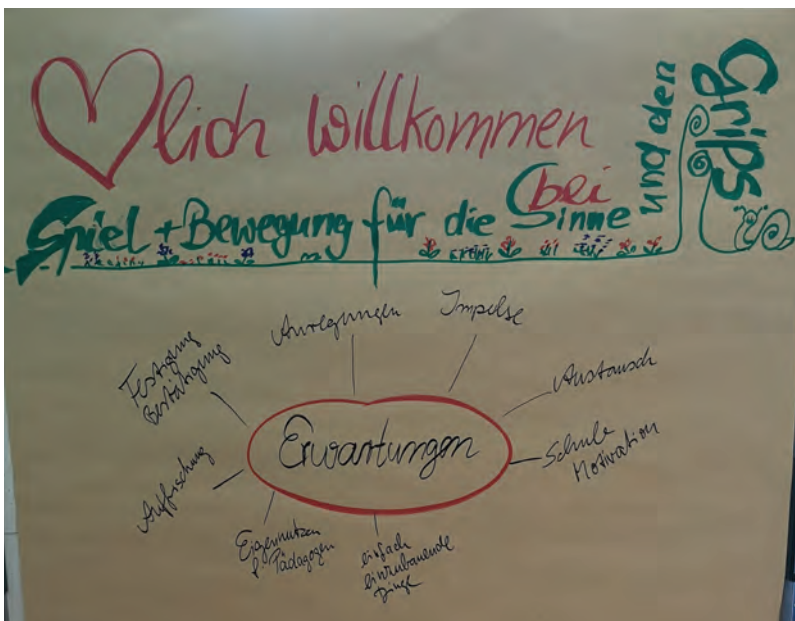 lich willkommen
bei
Spiel + Bewegung für die Sinne
und den
Grips
Anregungen
Impulse
Festigung
Bestätigung
Austausch
Erwartungen
Schule
Motivation
Auffrischung
Eigennutzen
f Pädagogen
einfach
einzubauende
Dinge